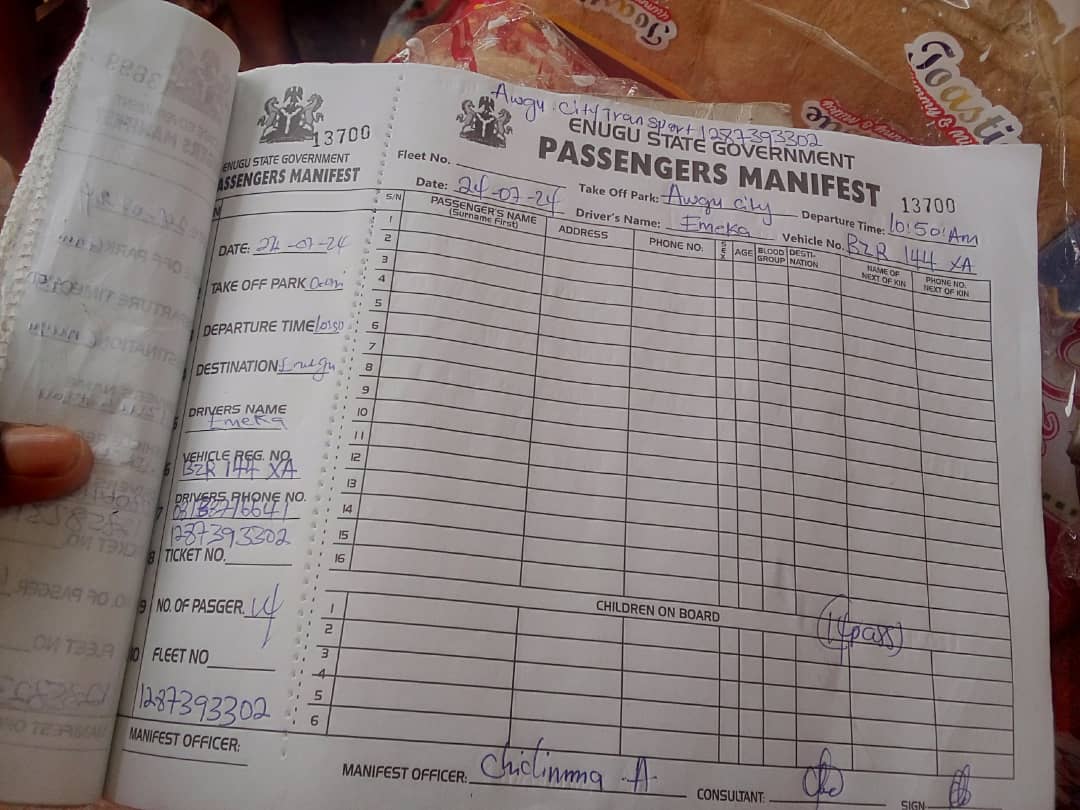 13700
ENUGU STATE GOVERNMENT
PASSENGERS MANIFEST
DATE: 24-07-24
TAKE OFF PARK
DEPARTURE TIME 10:50
DESTINATION Enugu
DRIVERS NAME
Emeka
VEHICLE REG. NO.
BZR 144 XA
DRIVERS PHONE NO.
1287393302
8 TICKET NO.
9 NO. OF PASGER. 14
10 FLEET NO
1287393302
MANIFEST OFFICER:
Awgu City Transport 1287393302
ENUGU STATE GOVERNMENT
PASSENGERS MANIFEST
13700
Fleet No.
Date: 24-07-24 Take Off Park: Awgu City Departure Time: 10:50 Am
Driver's Name: Emeka Vehicle No. BZR 144 XA
S/N PASSENGER'S NAME (Surname First) ADDRESS PHONE NO. SEX AGE BLOOD GROUP DESTI-NATION NAME OF NEXT OF KIN PHONE NO. NEXT OF KIN
1
2
3
4
5
6
7
8
9
10
11
12
13
14
15
16
CHILDREN ON BOARD
(14pass)
1
2
3
4
5
6
MANIFEST OFFICER: Chidinma A CONSULTANT: SIGN
Toasti